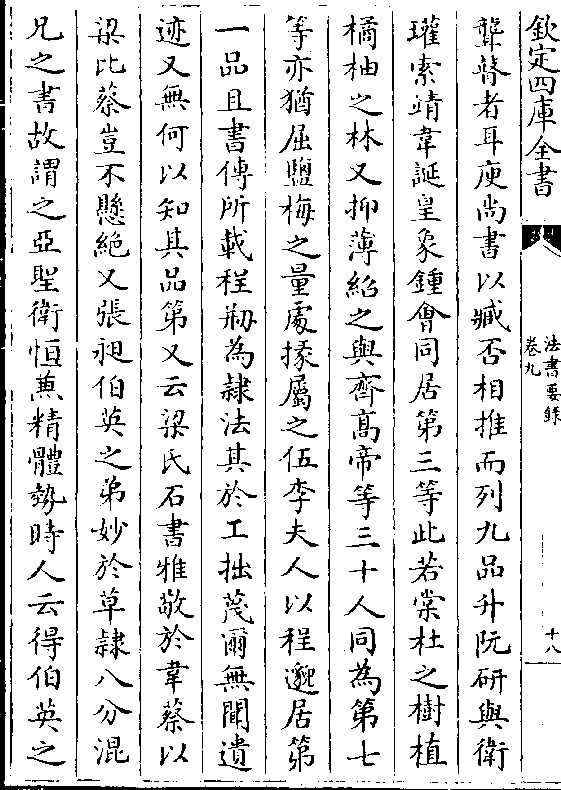 欽定四庫全書
法書要錄
卷九
十八
聾瞽者耳庾尚書以臧否相推而列九品升阮研與衛
瓘索靖韋誕皇象鍾會同居第三等此若棠杜之樹植
橘柚之林又抑薄紹之與齊髙帝等三十人同為第七
等亦猶屈鹽梅之量處掾屬之伍李夫人以程邈居第
一品且書傳所載程剏為隸法其於工拙蔑爾無聞遺
迹又無何以知其品第又云梁氏石書雅敬於韋蔡以
梁比蔡豈不懸絶又張昶伯英之弟妙於草隸八分混
兄之書故謂之亞聖衛恒兼精體勢時人云得伯英之